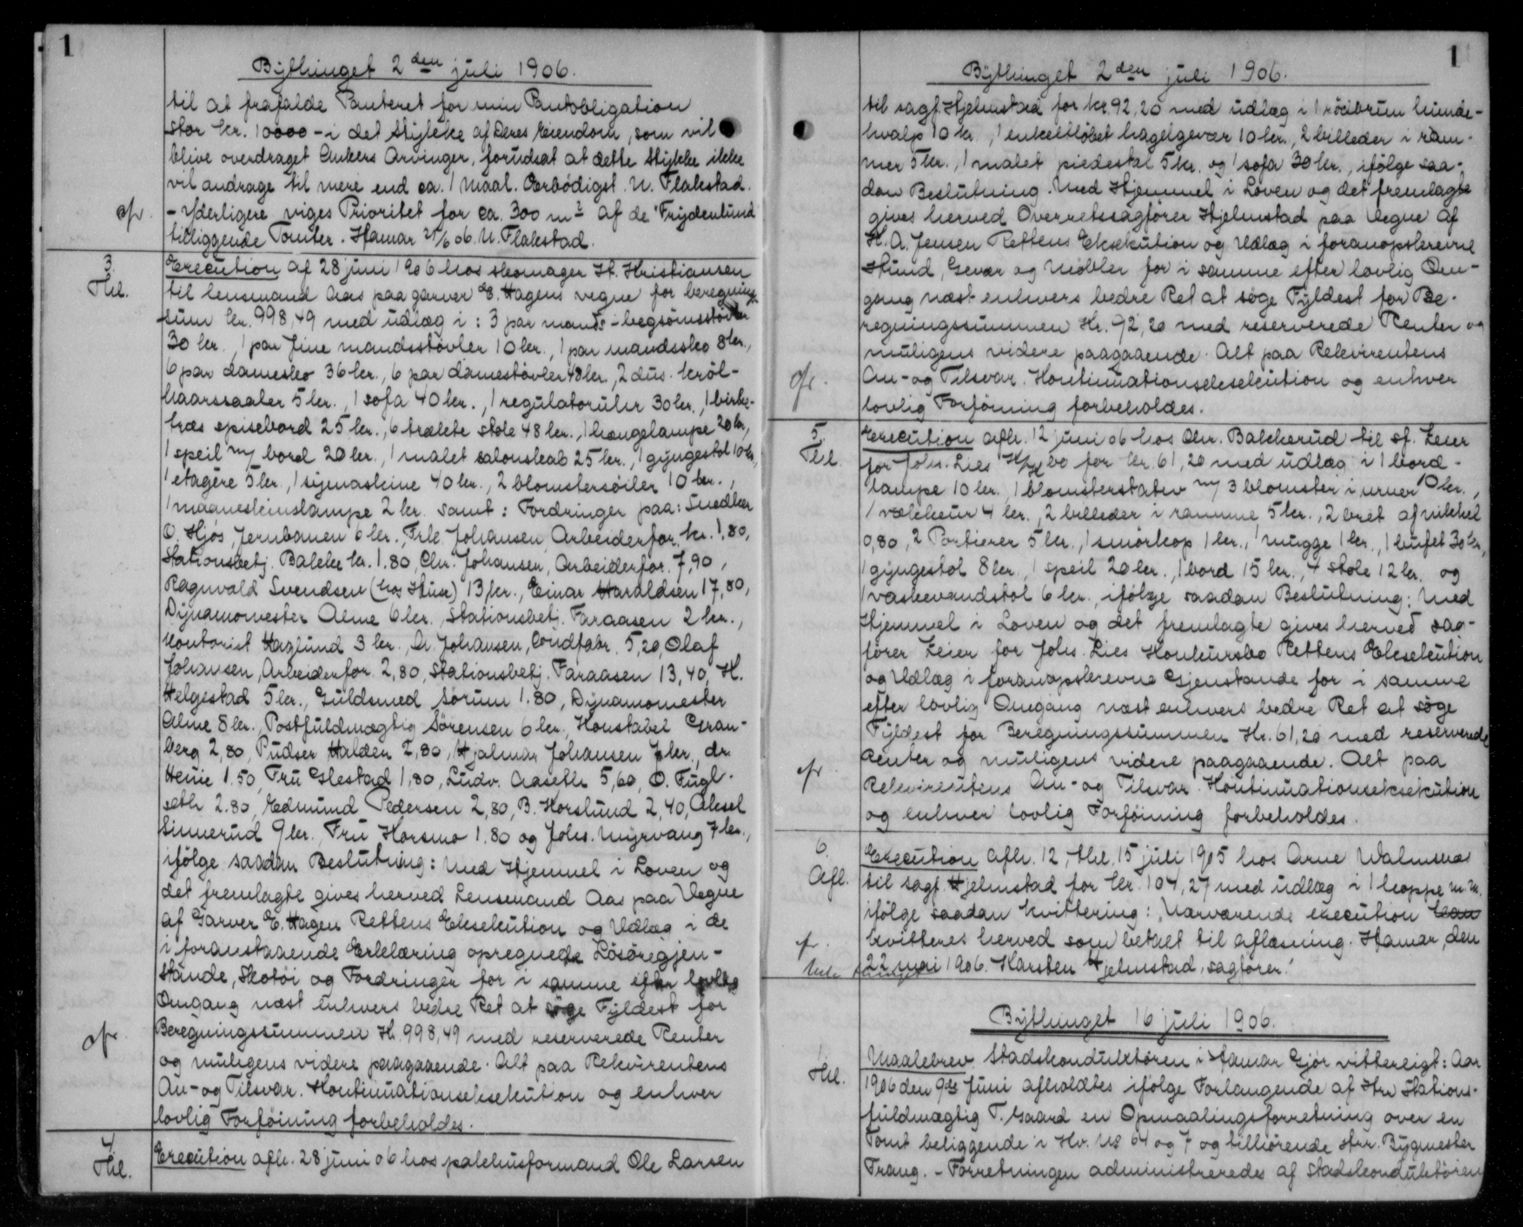 1
Bythinget 2den juli 1906.
til at frafalde Panteret for min Pantobligation
stor kr. 10000 - i det stykke af Deres Eiendom, som vil
blive overdraget Ankers Arvinger, forudsat at dette Stykke ikke
vil andrage til mere end ca. 1 Maal. Ærbödigst. N. Flakstad.
- Yderligere viges Prioritet for ca. 300 m2 af de "Frydenlund
tilliggende Tomter. Hamar 21/6 06. N. Flakstad.
3.
Thl.
Execution af 28 juni 1906 hos skomager H. Kristiansen
til lensmand Aas paa garver E. Hagens vegne for beregnings
sum kr. 998,49 med udlæg i: 3 par mands-begsömsstövler
30 kr., 1 par fine mandsstövler 10 kr., 1 par mandssko 8 kr.,
6 par damesko 36 kr., 6 par damestövler 48 kr., 2 dus. kröl-
haarssaaler 5 kr., 1 sofa 40 kr., 1 regulatoruhr 30 kr., 1 birke-
træs spisebord 25 kr., 6 trækte stole 48 kr., 1 hængelampe 20 kr.,
1 speil m/ bord 20 kr., 1 malet salonskab 25 kr., 1 gyngestol 10 kr,
1 etagère 5 kr., 1 symaskine 40 kr., 2 blomstersöiler 10 kr.,
1 maaneskinslampe 2 kr. samt: Fordringer paa: Snedker
O. Hjös, Jernbanen 6 kr., Frk. Johansen, Arbeiderfor. kr. 1,80,
Stationsbetj. Bakke kr. 1.80, Chr. Johansen, Arbeiderfor. 7,90,
Ragnvald Svendsen (hos Huse) 13 kr., Einar Haraldsen 17,80,
Dynamomester Alme 6 kr., Stationsbetj. Faraasen 2 kr.,
kontorist Haglund 3 kr. A. Johansen, 5,20 Olaf
Johansen, Arbeiderfor. 2,80, Stationsbetj. Faraasen 13,40, H.
Helgestad 5 kr., Guldsmed Sørum 1.80, Dynamomester
Alme 8 kr., Postfuldmægtig Sörensen 6 kr., Konstabel Gran-
berg 2,80, Pudser Halden 2,80, Hjalmar Johansen 7 kr., dr.
Heüie 1.50, Fru Glestad 1,80, Ludv. Aaseth 5,60, O. Fugl-
seth 2.80, Edmund Pedersen 2,80, B. Horslund 2,40, Aksel
Sinnerud 9 kr. Fru Horsmo 1.80 og Johs. Myrvang 7 kr.,
ifölge saadan Beslutning: Med Hjemmel i Loven og
det fremlagte gives herved Lensmand Aas paa Vegne
af Garver E. Hagen Rettens Eksekution og Udlæg i de
i foranstaaende Erklæring opregnede Lösöregjen-
stande, Skotöi og Fordringer for i samme efter lovlig
Omgang næst enhvers bedre Ret at söge Fyldest for
Beregningssummen K. 998,49 med reserverede Renter
og muligens videre paagaaende. Alt paa Rekvirentens
An- og Tilsvar. Kontinuationseksekution og enhver
lovlig Forföining forbeholdes.
4.
Thl.
Execution afh. 28 juni 06 hos pakhusformand Ole Larsen
1
Bythinget 2den juli 1906.
til sagf. Hjelmstad for kr. 92,20 med udlæg i 1 rödbrun hunde-
hvalp 10 kr., 1 enkeltløbet haglgevær 10 kr., 2 billeder i ram-
mer 5 kr., 1 malet piedestal 5 kr. og 1 sofa 30 kr., ifölge saa-
dan Beslutning. Med Hjemmel i Loven og det fremlagte
gives herved Overretssagförer Hjelmstad paa Vegne af
H. A. Jensen Rettens Eksekution og Udlæg i foranopskrevne
Hund, Gevær og Möbler for i samme efter lovlig Om-
gang næst enhvers bedre Ret at söge Fyldest for Be-
regningssummen Kr. 92,20 med reserverede Renter og
muligens videre paagaaende. Alt paa Rekvirentens
An- og Tilsvar. Kontinuationseksekution og enhver
lovlig Forföining forbeholdes.
5.
Thl.
Execution afh. 12 juni 06 hos Chr. Bakkerud til sf. Leier
for Johs. Lies bo for kr. 61,20 med udlæg i 1 bord-
lampe 10 kr. 1 blomsterstativ m/ 3 blomster i urner 10 kr.,
1 vækkeur 4 kr., 2 billeder i ramme 5 kr., 2 bret af nikkel
0,80, 2 Portierer 5 kr., 1 smörkop 1 kr., 1 mugge 1 kr., 1 bufet 30 kr,
1 gyngestol 8 kr., 1 speil 20 kr., 1 bord 15 kr., 4 stole 12 kr. og
1 vaskevandstol 6 kr., ifölge saadan Beslutning: Med
Hjemmel i Loven og det fremlagte gives herved sag-
förer Leier for Johs. Lies Konkursbo Rettens Eksekution
og Udlæg i foranopskrevne Gjenstande for i samme
efter lovlig Omgang næst enhvers bedre Ret at söge
Fyldest for Beregningssummen Kr. 61,20 med reserverede
Renter og muligens videre paagaaende. Alt paa
Rekvirentens An- og Tilsvar. Kontinuationseksekution
og enhver lovlig Forföining forbeholdes.
6.
Afl.
Execution afh. 12, thl. 15 juli 1905 hos Arne Walmsnæs
til sagf. Hjelmstad for kr. 104,27 med udlæg i 1 hoppe m.m.
ifölge saadan kvittering: "Nærværende execution kan
kvitteres herved som betalt til aflæsning. Hamar, den
22 mai 1906. Karsten Hjelmstad, sagförer."
Bythinget 16 juli 1906.
1.
Thl.
Maalebrev Stadskonduktören i Hamar Gjör vitterligt: Aar
1906 den 9de Juni afholdtes ifölge Forlangende af Hr. Stations-
fuldmægtig T. Gaard en Opmaalingsforretning over en
Tomt beliggende i Kv. No 64 og 7 og tilhörende Hrr. Bygmester
Trang. - Forretningen administreredes af Stadskonduktören